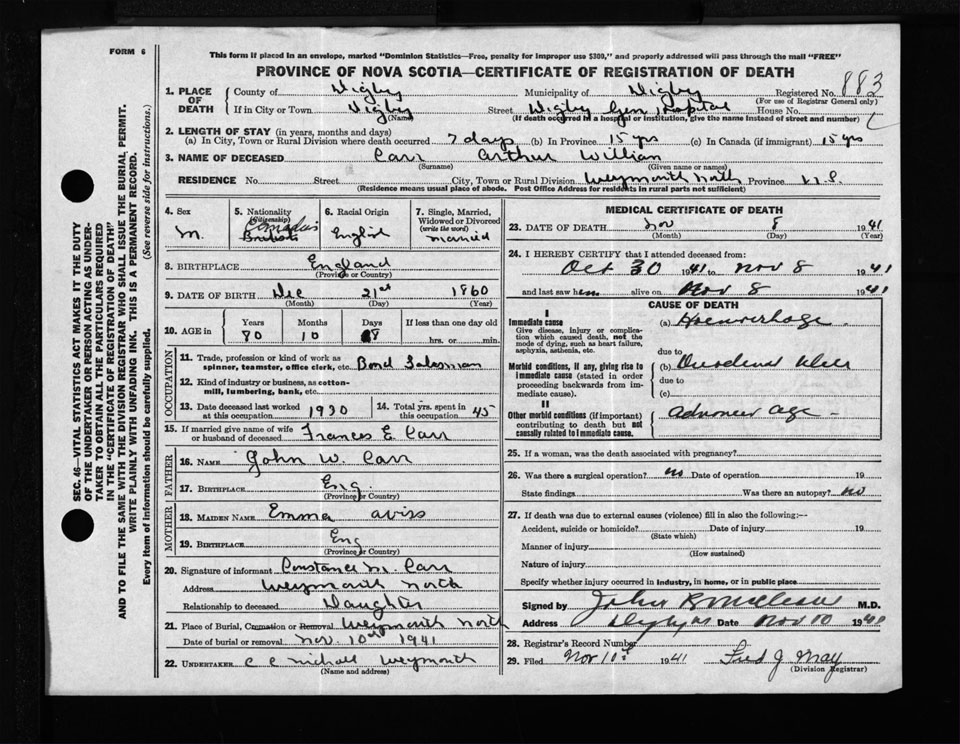 FORM 6
This form if placed in an envelope, marked "Dominion Statistics—Free, penalty for improper use $300," and properly addressed will pass through the mail "FREE"
PROVINCE OF NOVA SCOTIA—CERTIFICATE OF REGISTRATION OF DEATH
SEC. 46—VITAL STATISTICS ACT MAKES IT THE DUTY
OF THE UNDERTAKER OR PERSON ACTING AS UNDER-
TAKER TO OBTAIN ALL THE PARTICULARS REQUIRED
IN THE "CERTIFICATE OF REGISTRATION OF DEATH"
AND TO FILE THE SAME WITH THE DIVISION REGISTRAR WHO SHALL ISSUE THE BURIAL PERMIT.
WRITE PLAINLY WITH UNFADING INK. THIS IS A PERMANENT RECORD.
Every item of information should be carefully supplied. (See reverse side for instructions.)
1. PLACE OF DEATH County of Digby Municipality of Digby Registered No. 883
(For use of Registrar General only)
If in City or Town Digby Street Digby Gen Hospital House No.
(Name) (If death occurred in a hospital or institution, give the name instead of street and number)
2. LENGTH OF STAY (in years, months and days)
(a) In City, Town or Rural Division where death occurred 7 days (b) In Province 15 yrs (c) In Canada (if immigrant) 15 yrs
3. NAME OF DECEASED Carr Arthur William
(Surname) (Given name or names)
RESIDENCE No. Street City, Town or Rural Division Weymouth North Province N.S.
(Residence means usual place of abode. Post Office Address for residents in rural parts not sufficient)
4. Sex M.
5. Nationality (Citizenship) British
6. Racial Origin English
7. Single, Married, Widowed or Divorced (write the word) Married
8. BIRTHPLACE England
(Province or Country)
9. DATE OF BIRTH Dec 21st 1860
(Month) (Day) (Year)
10. AGE in Years Months Days If less than one day old
80 10 hrs. or min.
OCCUPATION
11. Trade, profession or kind of work as spinner, teamster, office clerk, etc. Bond Salesman
12. Kind of industry or business, as cotton-mill, lumbering, bank, etc.
13. Date deceased last worked at this occupation 1930
14. Total yrs. spent in this occupation 45
15. If married give name of wife or husband of deceased Frances E. Carr
FATHER
16. NAME John W. Carr
17. BIRTHPLACE Eng.
(Province or Country)
MOTHER
18. MAIDEN NAME Emma Aviss
19. BIRTHPLACE Eng
(Province or Country)
20. Signature of informant Constance M. Carr
Address Weymouth North
Relationship to deceased Daughter
21. Place of Burial, Cremation or Removal Weymouth North
Date of burial or removal Nov. 10th 1941
22. UNDERTAKER Weymouth
(Name and address)
MEDICAL CERTIFICATE OF DEATH
23. DATE OF DEATH Nov 8 1941
(Month) (Day) (Year)
24. I HEREBY CERTIFY that I attended deceased from:
Oct 30 1941 to Nov 8 1941
and last saw him alive on Nov 8 1941
CAUSE OF DEATH
I
Immediate cause
Give disease, injury or complication which caused death, not the mode of dying, such as heart failure, asphyxia, asthenia, etc.
(a)
due to
Morbid conditions, if any, giving rise to immediate cause (stated in order proceeding backwards from immediate cause).
(b) Ulcer
due to
(c)
II
Other morbid conditions (if important) contributing to death but not causally related to immediate cause.
age
25. If a woman, was the death associated with pregnancy?
26. Was there a surgical operation? no Date of operation 19
State findings Was there an autopsy? no
27. If death was due to external causes (violence) fill in also the following:—
Accident, suicide or homicide? Date of injury 19
(State which)
Manner of injury
(How sustained)
Nature of injury
Specify whether injury occurred in industry, in home, or in public place
Signed by John M.D.
Address Date Nov 10 19
28. Registrar's Record Number
29. Filed Nov 10 1941 Fred J. May
(Division Registrar)